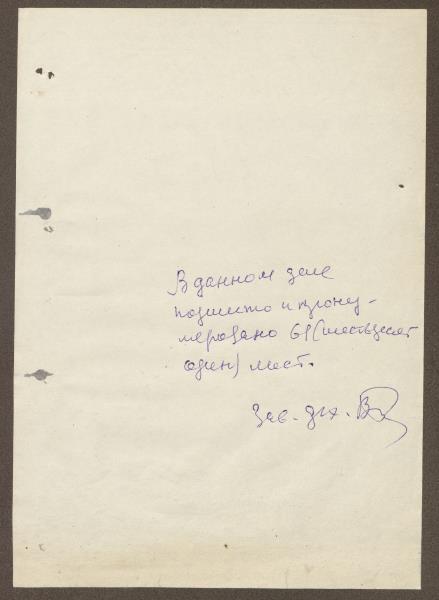 В данном деле
подшито и прону-
меровано 61 (шестьдесят
один) лист.
Зав.